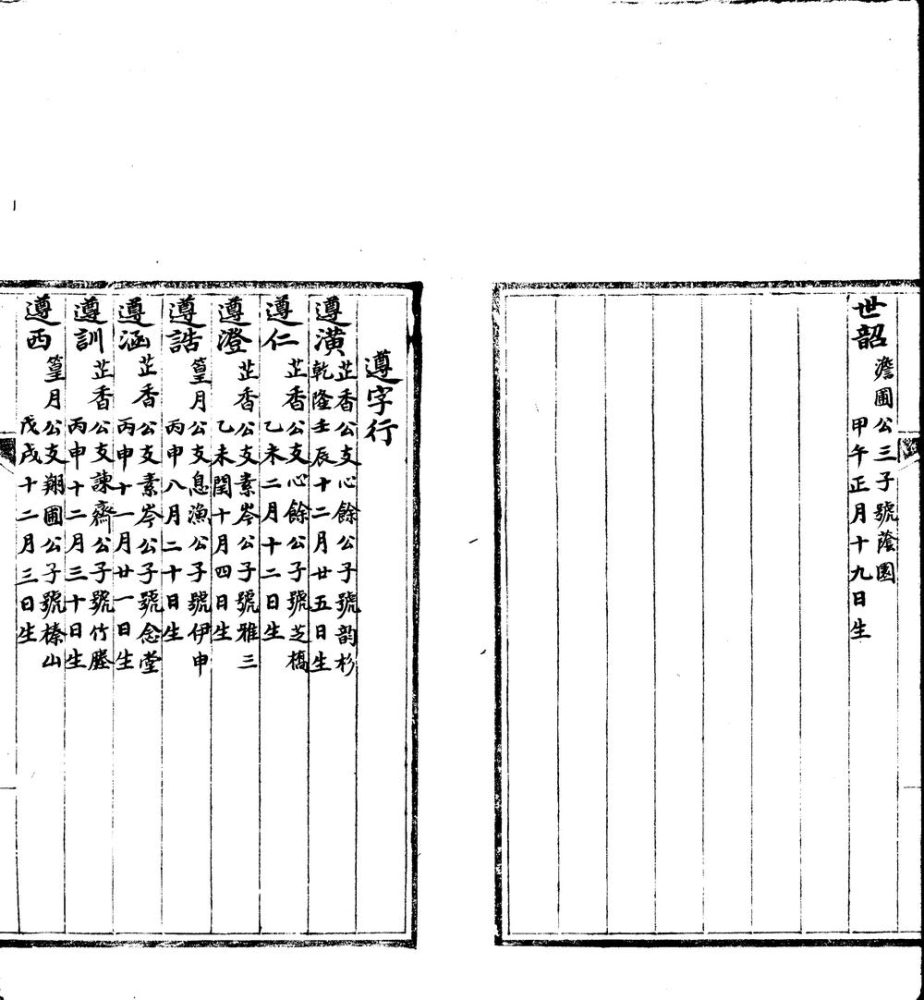 世韶
澹圃公三子號蔭園
甲午正月十九日生
遵字行
遵潢
芷香公支心餘公子號韵杉
乾隆壬辰十二月廿五日生
遵仁
芷香公支心餘公子號芝橋
乙未二月十二日生
遵澄
芷香公支素岑公子號雅三
乙未閏十月四日生
遵誥
篁月公支息漁公子號伊申
丙申八月二十日生
遵涵
芷香公支素岑公子號念堂
丙申十一月廿一日生
遵訓
芷香公支諫齋公子號竹塍
丙申十二月三十日生
遵西
篁月公支翔圃公子號榛山
戊戌十二月三日生